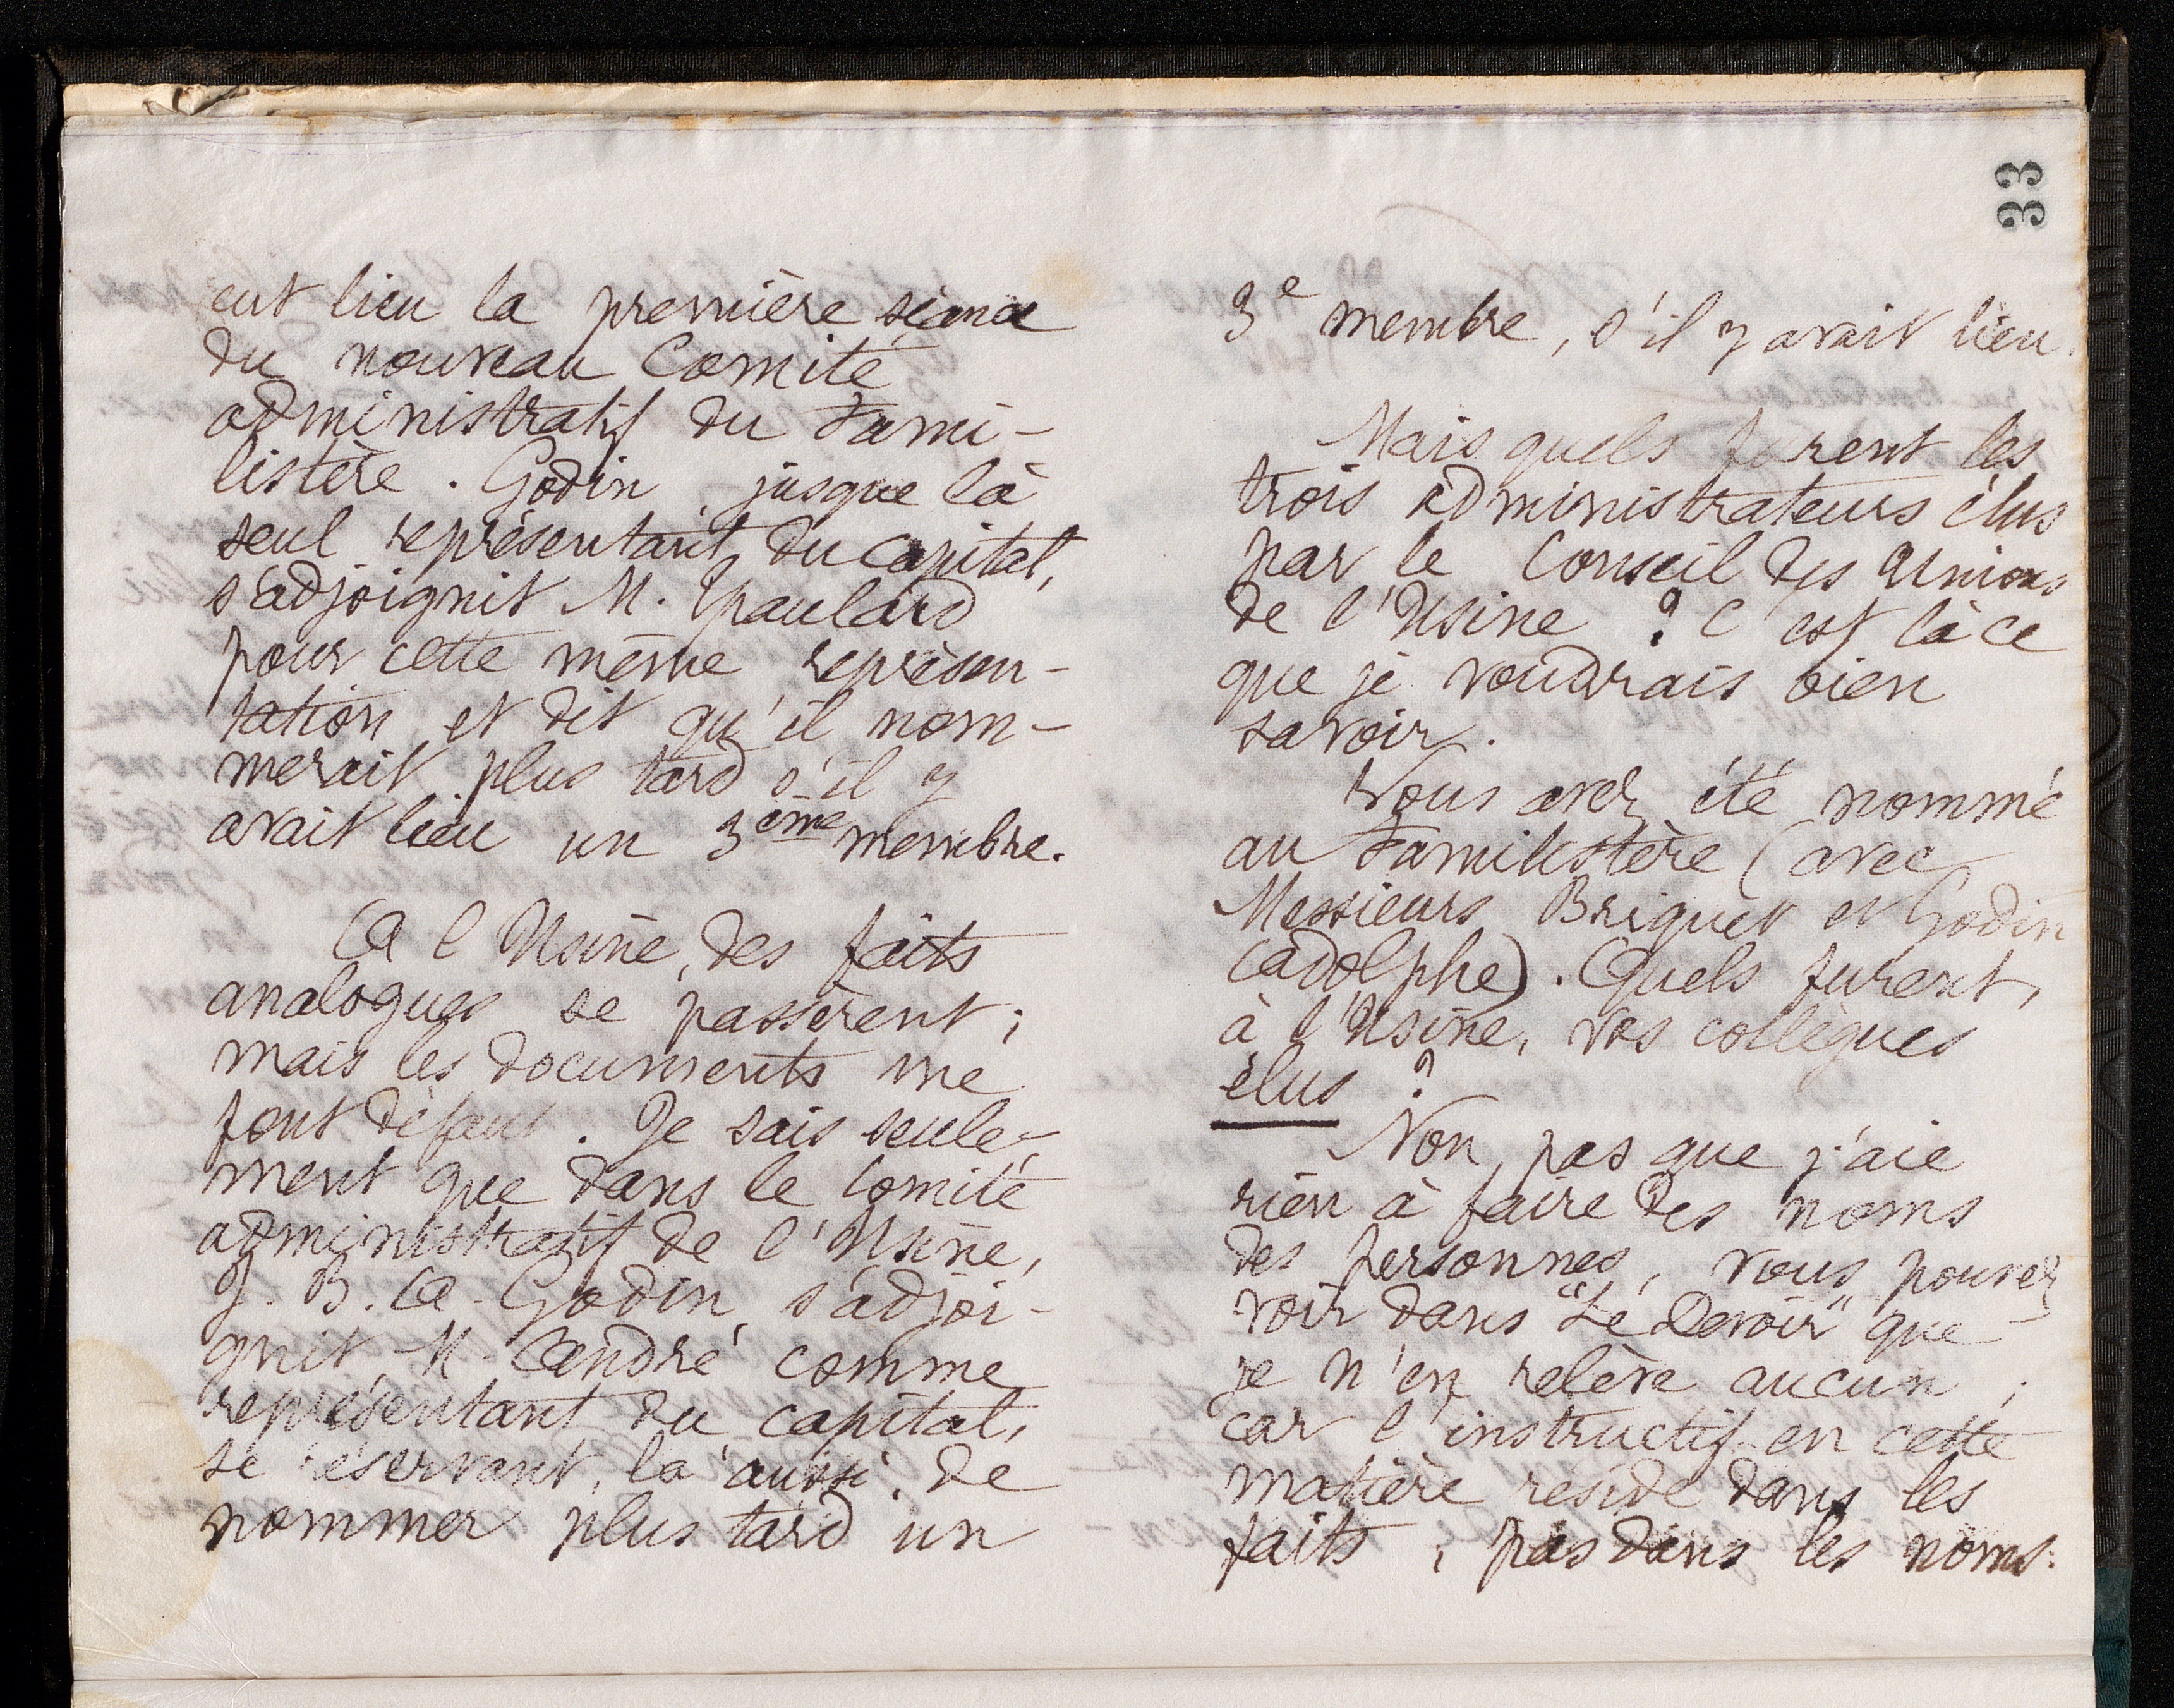 eut lieu la première séance
du nouveau Comité
administratif du Fami-
listère. Godin, jusque là
seul représentant du Capital,
s'adjoignit M. Gpaulard
pour cette même représen-
tation et dit qu'il nom-
merait plus tard s'il y
avait lieu un 3ème membre.
A l'Usine, des faits
analogues se passèrent;
mais les documents me
font défaut. Je sais seule-
ment que dans le Comité
administratif de l'Usine,
J. B. A. Godin, s'adjoi-
gnit M. André comme
représentant du capital,
se réservant, là aussi, de
nommer plus tard un
33
3e membre, s'il y avait lieu.
Mais quels furent les
trois administrateurs élus
par le Conseil des Unions
de l'Usine ? C'est là ce
que je voudrais bien
savoir.
Vous avez été nommé
au Familistère (avec
Messieurs Briquet et Godin
Adolphe). Quels furent,
à l'Usine, vos collègues
élus ?
Non, pas que j'aie
rien à faire des noms
des personnes, vous pouvez
voir dans "Le Devoir" que
je n'en relève aucun ;
car l'instructif en cette
matière réside dans les
faits, pas dans les noms.